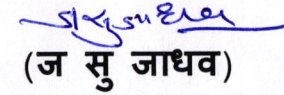 (ज सु जाधव)